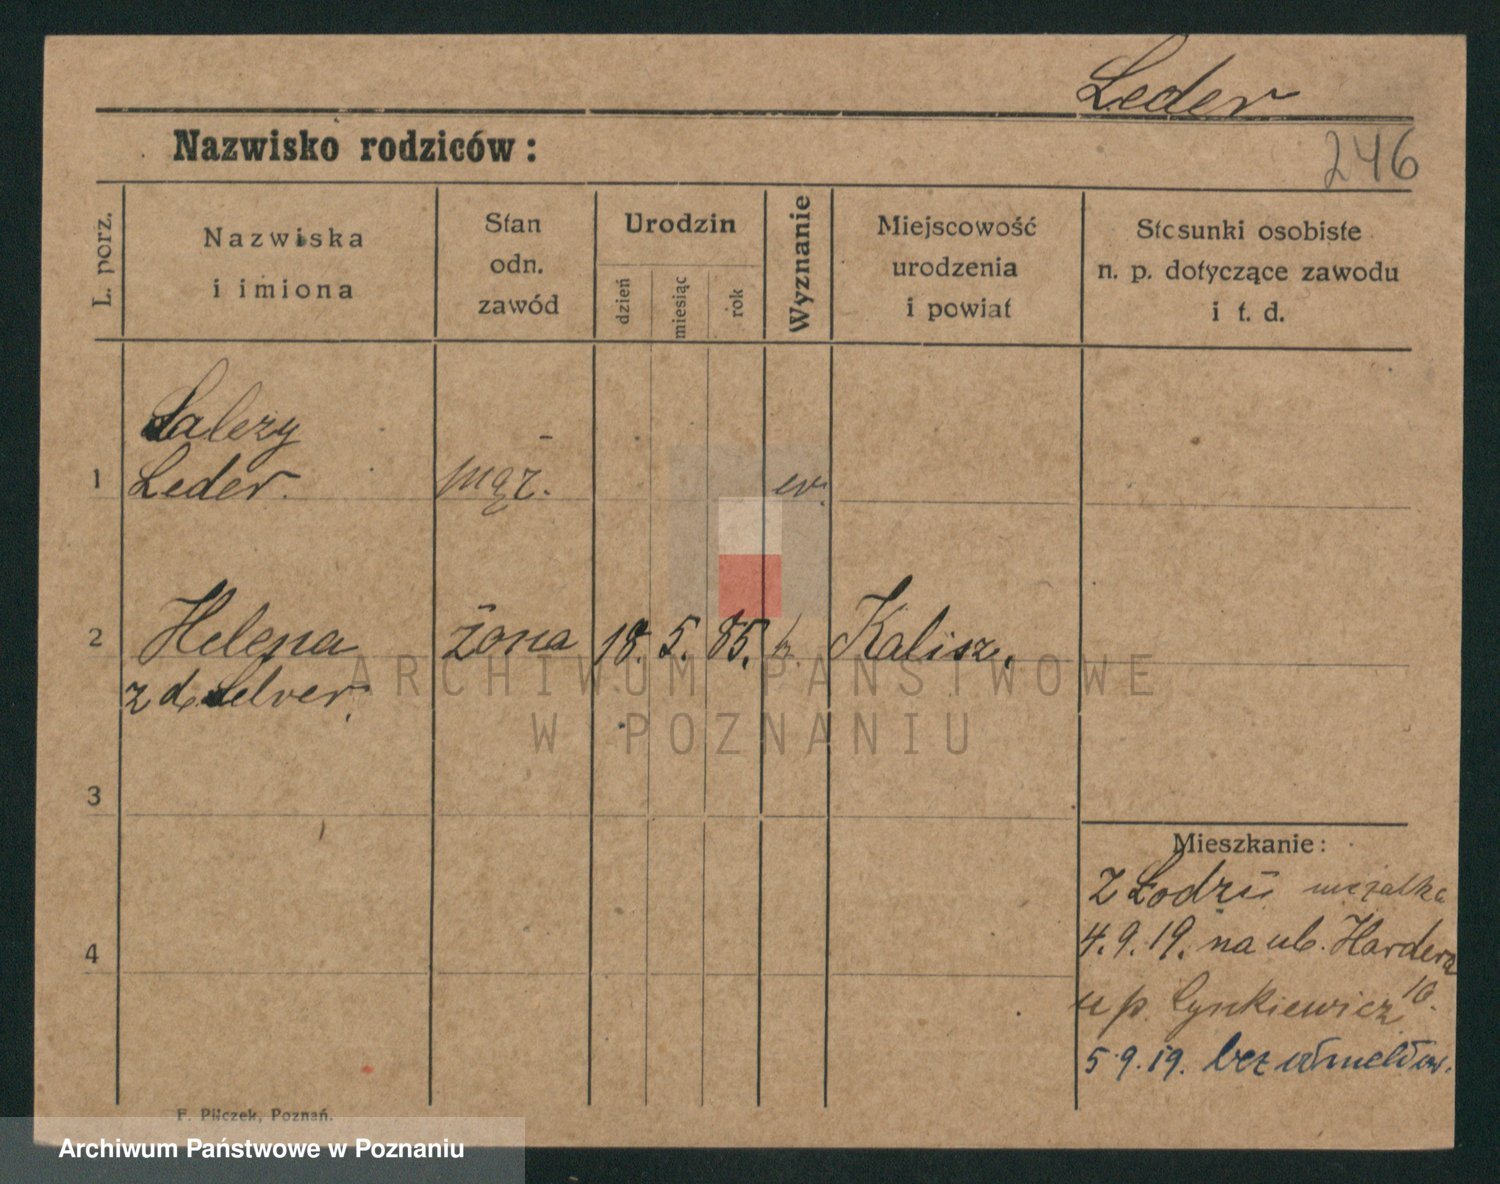 Leder
Nazwisko rodziców:
246
L. porz.
Nazwiska
i imiona
Stan
odn.
zawód
Urodzin
dzień
miesiąc
rok
Wyznanie
Miejscowość
urodzenia
i powiat
Stosunki osobiste
n. p. dotyczące zawodu
i t. d.
1
Salezy
Leder.
mąż.
ew.
2
Helena
z d. Selver.
żona
18. 5. 85.
Kalisz.
3
4
Mieszkanie:
z Łodzi
4.9.19. na ul. Hardera
10.
u p.
5.9.19. bez
F. Pilczek, Poznań.
ARCHIWUM PAŃSTWOWE
W POZNANIU
Archiwum Państwowe w Poznaniu